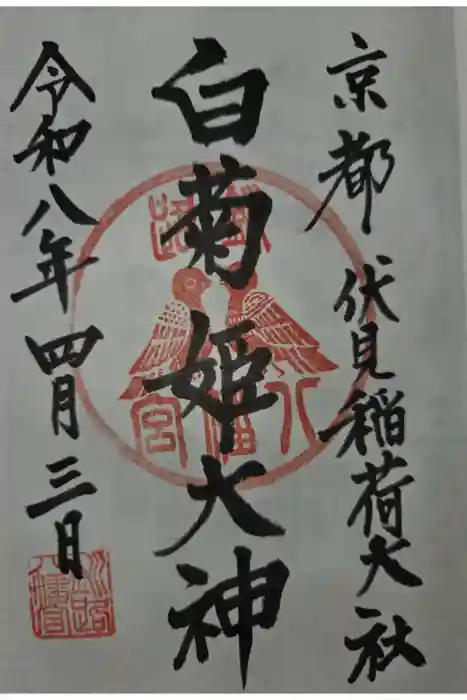 京都伏見稲荷大社
白菊姫大神
令和八年四月三日
八幡宮